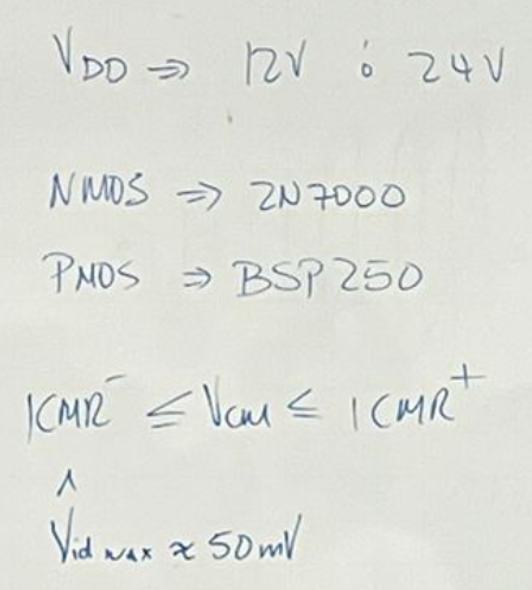 VDD ⇒ 12V ó 24V
NMOS ⇒ 2N7000
PMOS ⇒ BSP250
ICMR⁻ ≤ Vcm ≤ ICMR⁺
^
Vid max ≈ 50mV